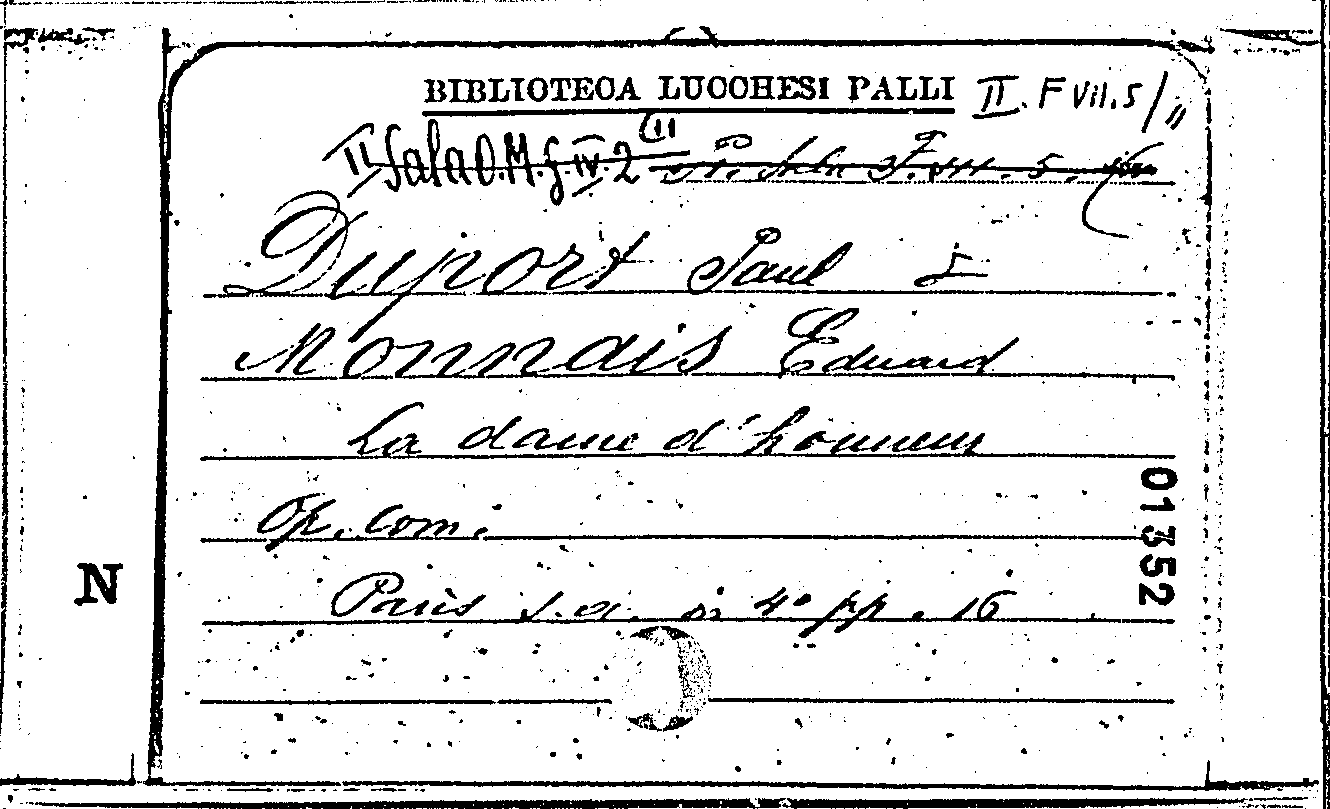 BIBLIOTECA LUCCHESI PALLI II. F VII. 5/"
II Sala O.M.f.IV.2
Duport Paul &
Monnais Eduard
La dame d'honneur
Op. com.
Paris s.a. in 4° pp. 16
01352
N